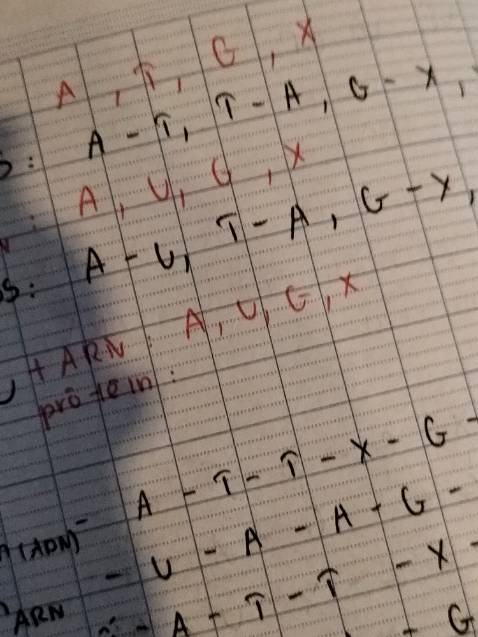 A, T, G, X
S: A - T, T - A, G - X,
N: A, U, G, X
S: A - U, T - A, G - X,
U + ARN: A, U, G, X
prôtêin:
- A - T - T - X - G -
A (ADN)
- U - A - A - G -
ARN
- A - T - T - X -
G